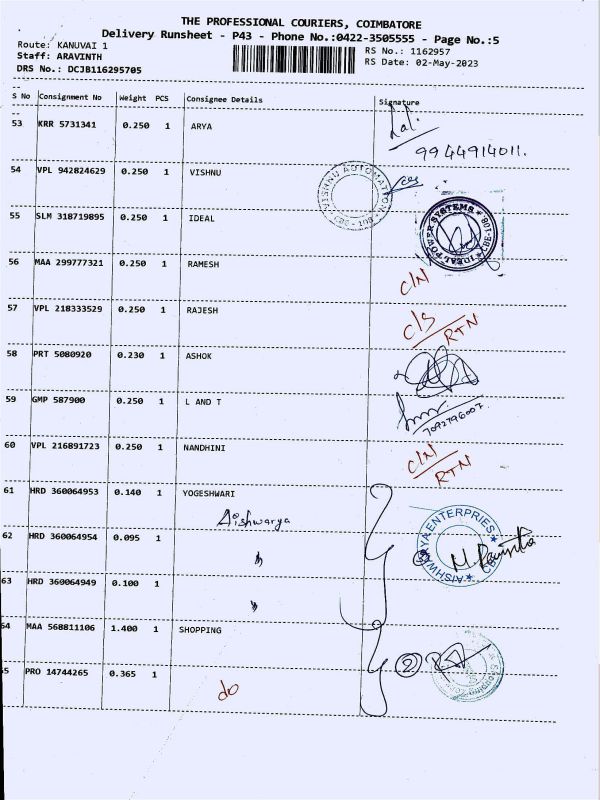 THE PROFESSIONAL COURIERS, COIMBATORE
Delivery Runsheet - P43 - Phone No.:0422-3505555 - Page No.:5
Route: KANUVAI 1
Staff: ARAVINTH
DRS No.: DCJB116295705
RS No.: 1162957
RS Date: 02-May-2023
S No Consignment No Weight PCS Consignee Details Signature
53 KRR 5731341 0.250 1 ARYA
9944914011.
54 VPL 942824629 0.250 1 VISHNU
VISHNU AUTOMATION
55 SLM 318719895 0.250 1 IDEAL
IDEAL POWER SYSTEMS
56 MAA 299777321 0.250 1 RAMESH C/N
57 VPL 218333529 0.250 1 RAJESH C/S RTN
58 PRT 5080920 0.230 1 ASHOK
59 GMP 587900 0.250 1 L AND T
7092796007.
60 VPL 216891723 0.250 1 NANDHINI C/N RTN
61 HRD 360064953 0.140 1 YOGESHWARI
Aishwarya
AISHWARYA ENTERPRIES
62 HRD 360064954 0.095 1
63 HRD 360064949 0.100 1
64 MAA 568811106 1.400 1 SHOPPING
2
65 PRO 14744265 0.365 1
do